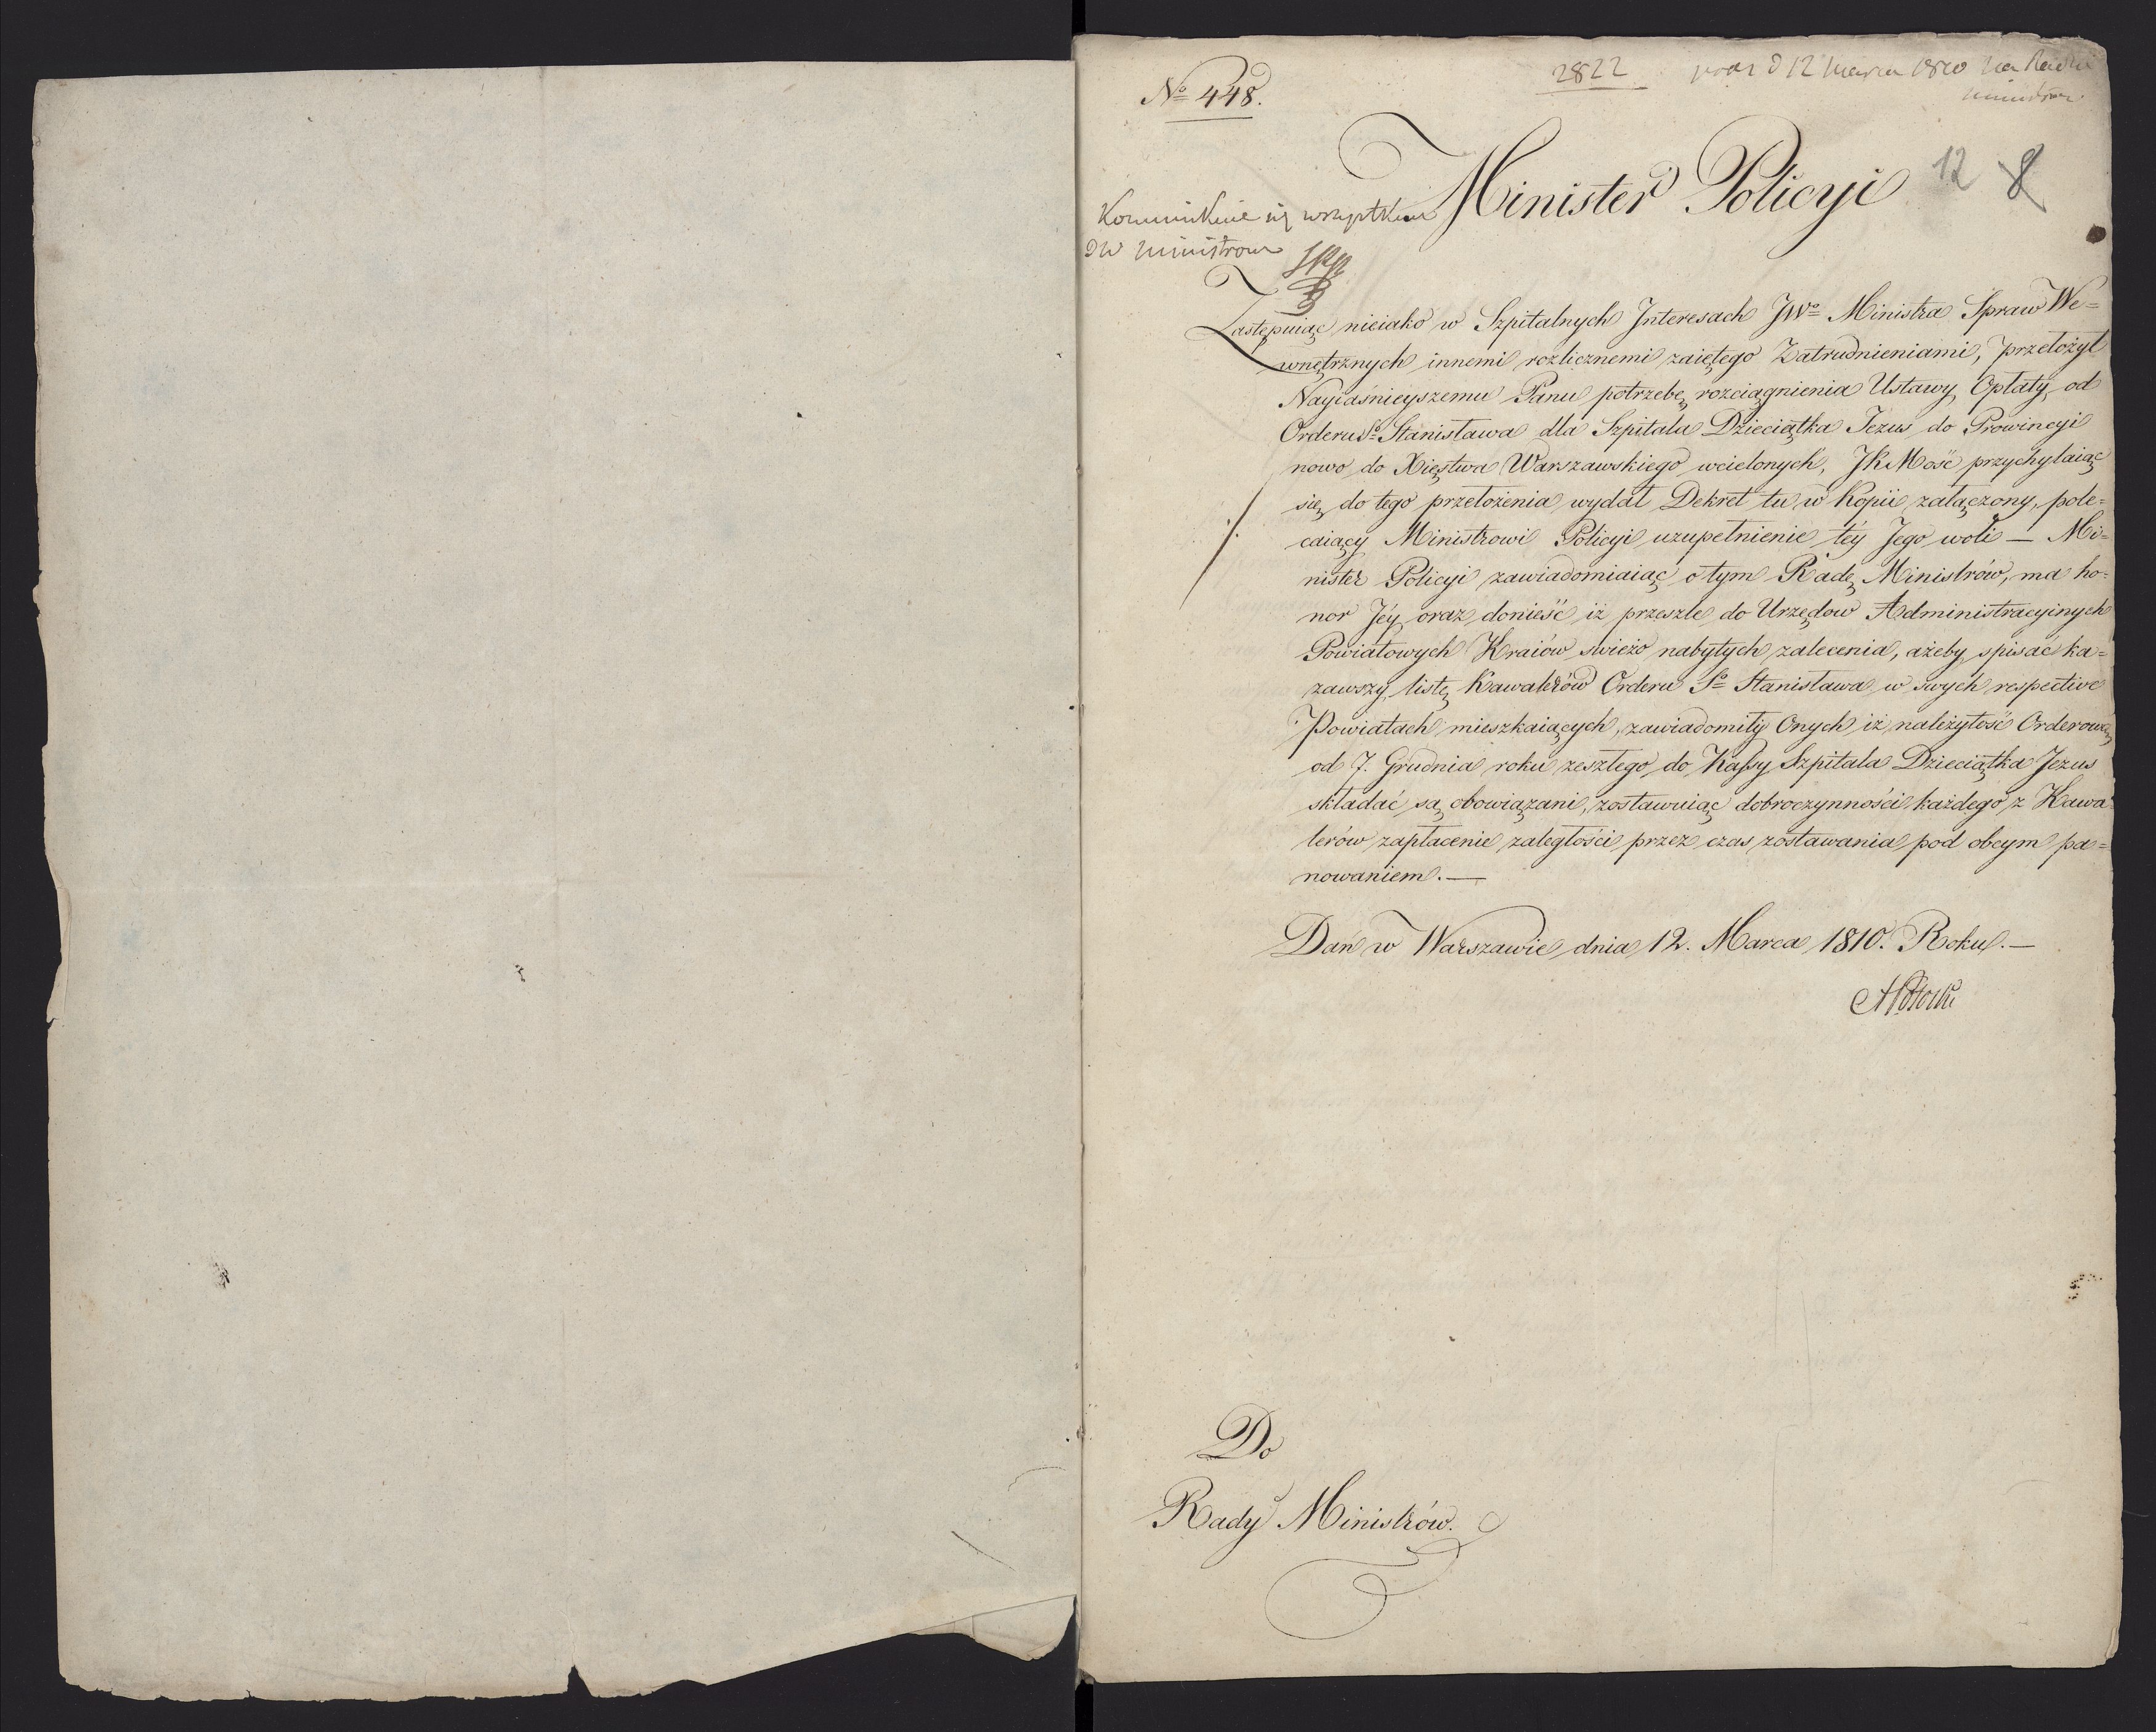 No 448.
2822 d 12 marca 1810 na Radzie
ministrów
Minister Policyi
12 8
Kommunikuie się wszystkim
JW Ministrom
Zastępuiąc nieiako w Szpitalnych Interesach JWo Ministra Spraw We=
wnętrznych innemi rozlicznemi zaiętego Zatrudnieniami, przełożył
Nayiaśnieyszemu Panu potrzebę rozciągnienia Ustawy, Opłaty, od
Orderu So Stanisława dla Szpitala Dzieciątka Jezus do Prowincyi
nowo do Xięstwa Warszawskiego wcielonych, JKMość przychylaiąc
się do tego przełożenia wydał Dekret tu w Kopii załączony, pole=
caiący Ministrowi Policyi uzupełnienie téy Jego woli — Mi=
nister Policyi zawiadomiaiąc o tym Radę Ministrów, ma ho=
nor Jéy oraz donieść iż przeszle do Urzędow Administracyinych
Powiatowych Kraiów świeżo nabytych zalecenia, ażeby spisać ka=
zawszy listę Kawalerów Orderu So Stanisława w swych respective
Powiatach mieszkaiących, zawiadomiły Onych iż należytość Orderową
od 7. Grudnia roku zeszłego do Kassy Szpitala Dzieciątka Jezus
składać są obowiązani, zostawuiąc dobroczynności każdego z Kawa
lerów zapłacenie zaległości przez czas zostawania pod obcym pa=
nowaniem. —
Dań w Warszawie dnia 12. Marca 1810. Roku. —
APotocki
Do
Rady Ministrów.